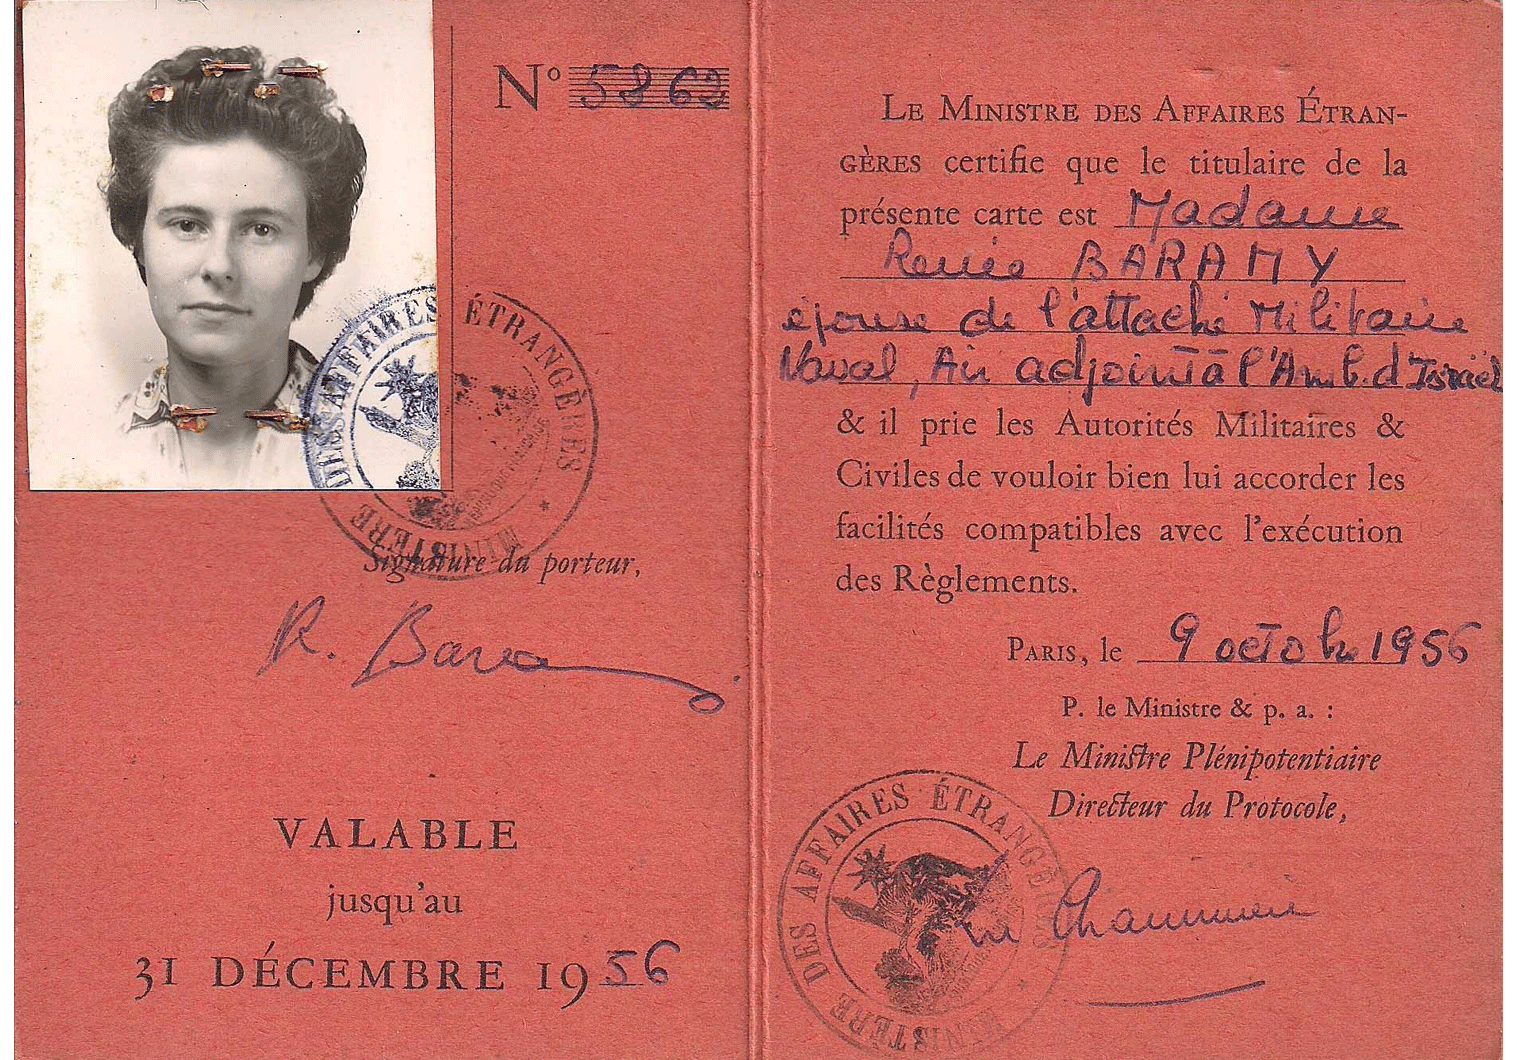 N° 5862
DES AFFAIRES ÉTRANGÈRES
MINISTÈRE
Signature du porteur,
R. Bara
VALABLE
jusqu'au
31 DÉCEMBRE 1956
LE MINISTRE DES AFFAIRES ÉTRAN-
GÈRES certifie que le titulaire de la
présente carte est Madame
Renée BARAMY
épouse de l'attaché Militaire
Naval, Air adjoint à l'Amb. d'Israël
& il prie les Autorités Militaires &
Civiles de vouloir bien lui accorder les
facilités compatibles avec l'exécution
des Règlements.
PARIS, le 9 octobre 1956
P. le Ministre & p. a. :
Le Ministre Plénipotentiaire
Directeur du Protocole,
MINISTÈRE DES AFFAIRES ÉTRANGÈRES